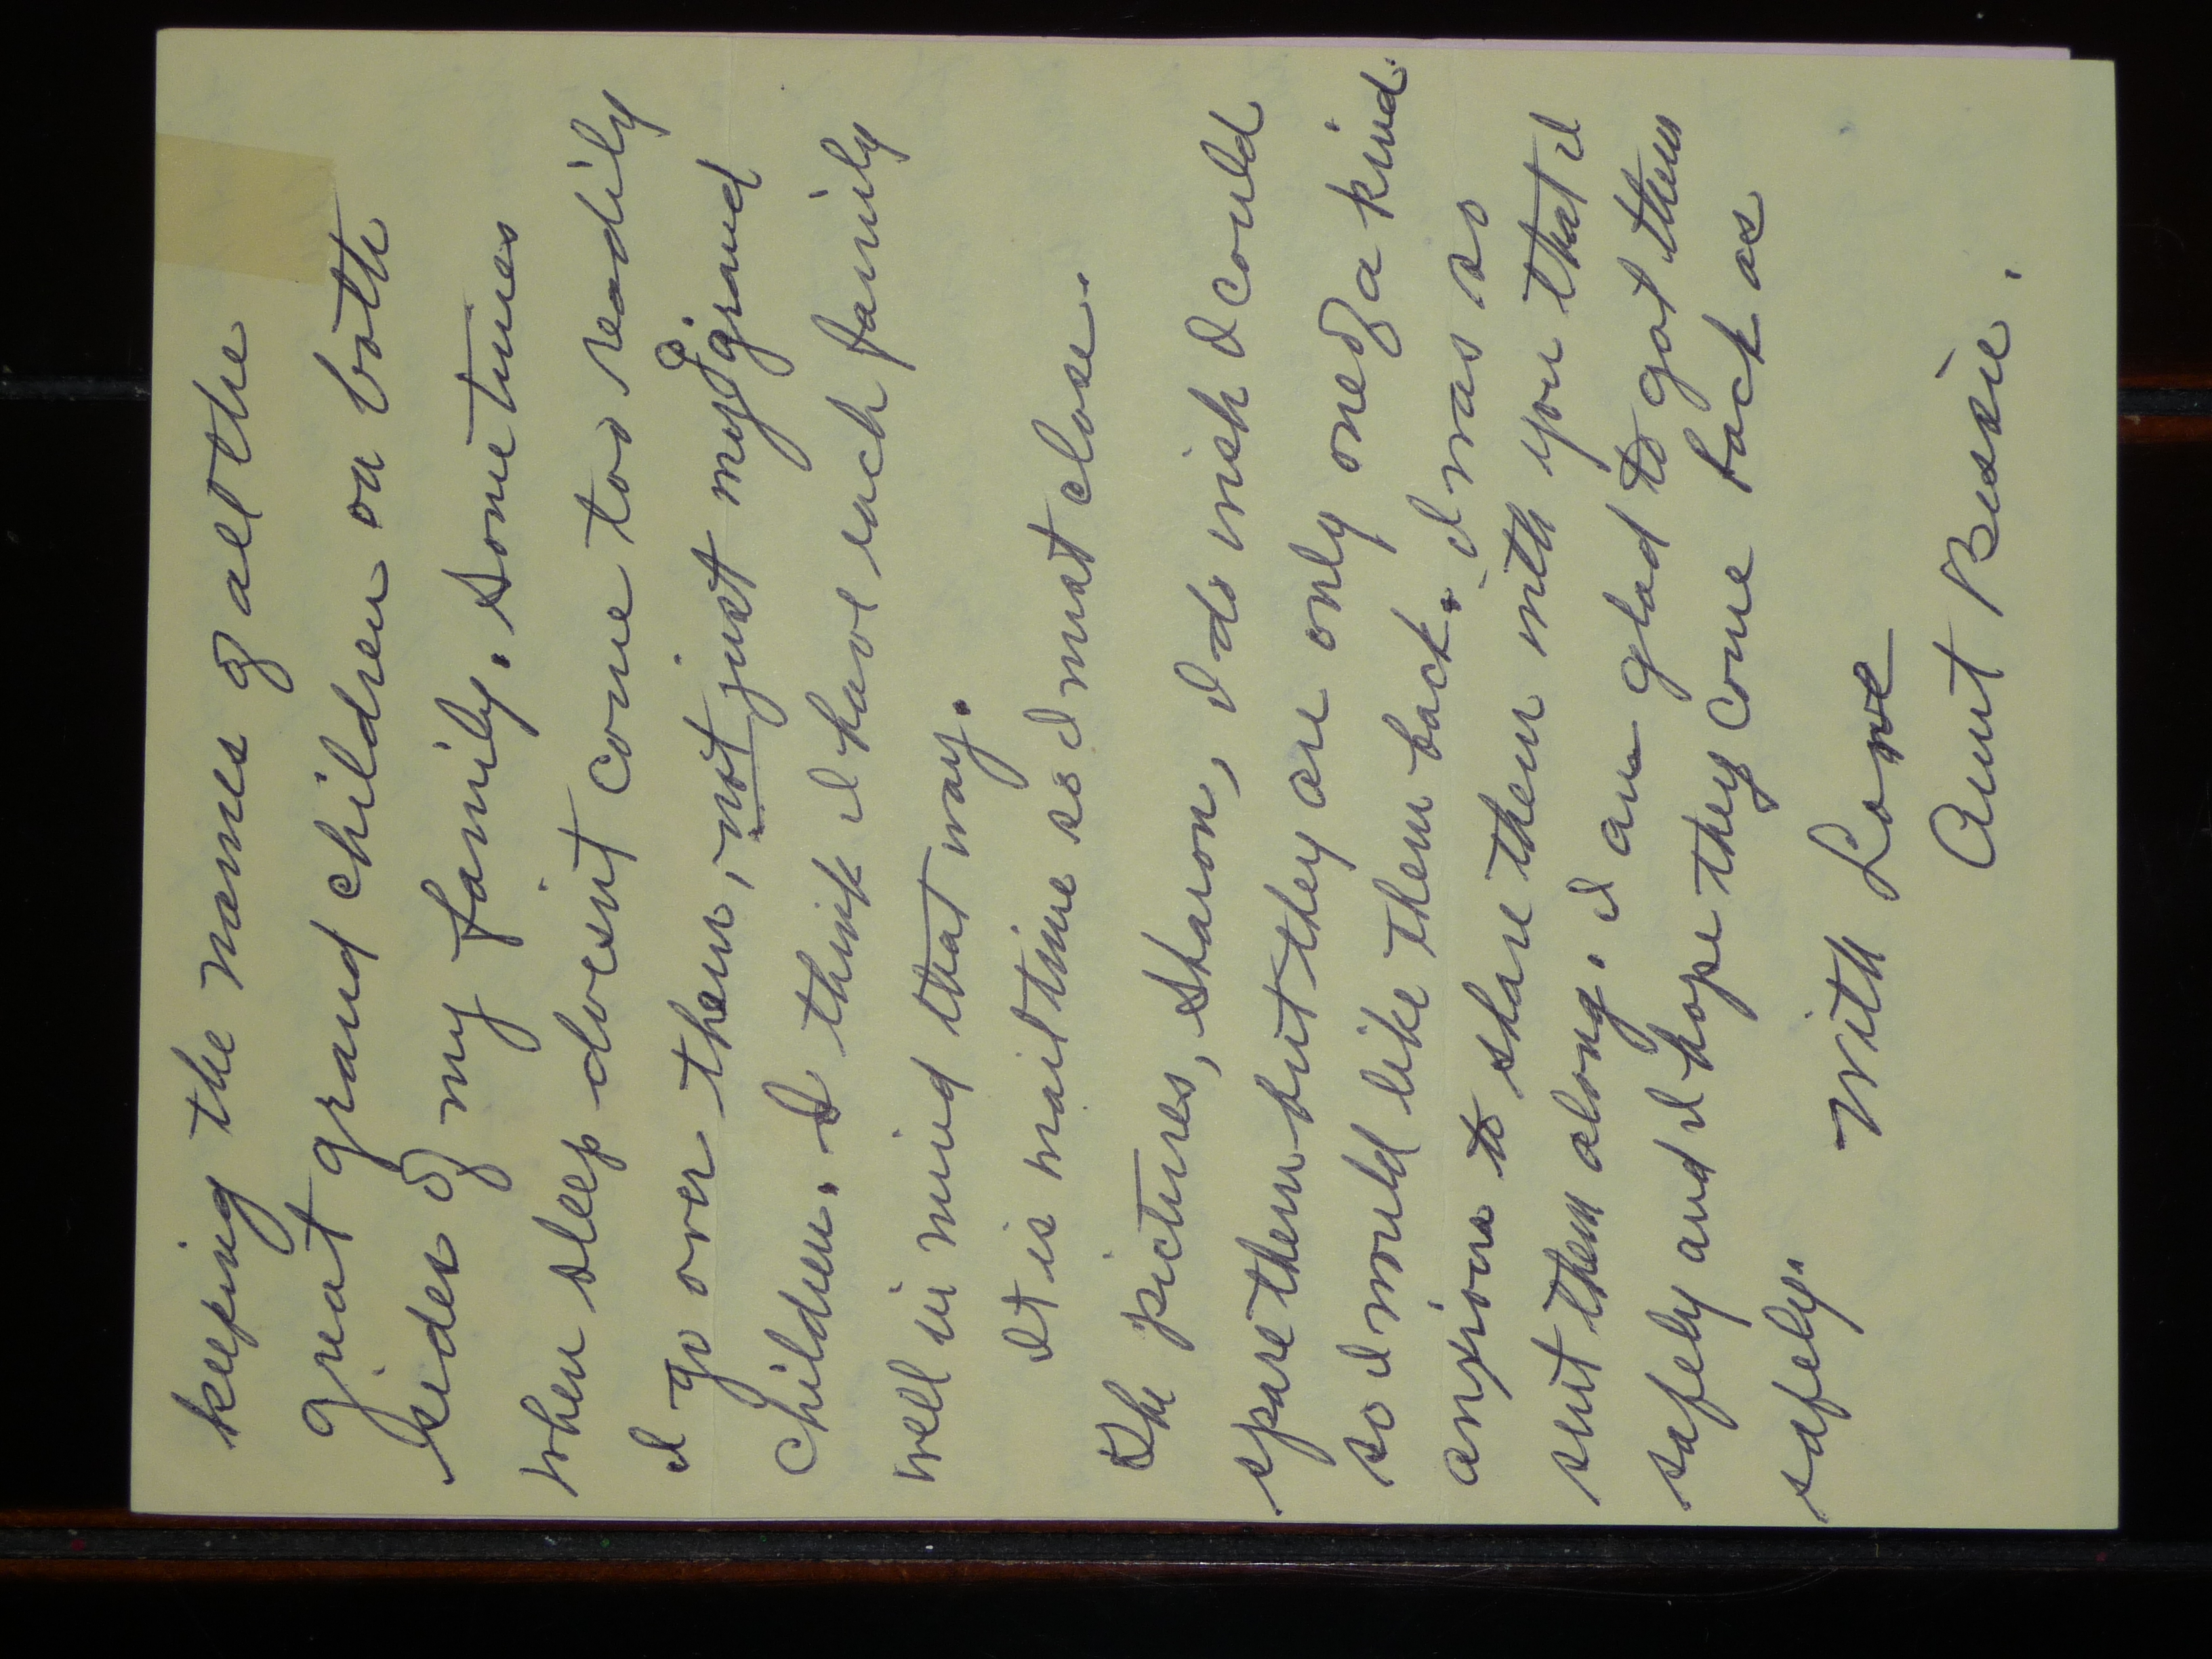 keeping the names of all the
great grand children on both
sides of my family. Sometimes
when sleep doesn't come too readily
I go over them, not just my g. grand
children. I think I have each family
well in mind that way.
It is mail time so I must close.
The pictures, Sharon, I do wish I could
spare them but they are only one of a kind
so I would like them back. I was so
anxious to share them with you that I
sent them along. I am glad to got them
safely and I hope they come back as
safely.
With Love
Aunt Bessie.